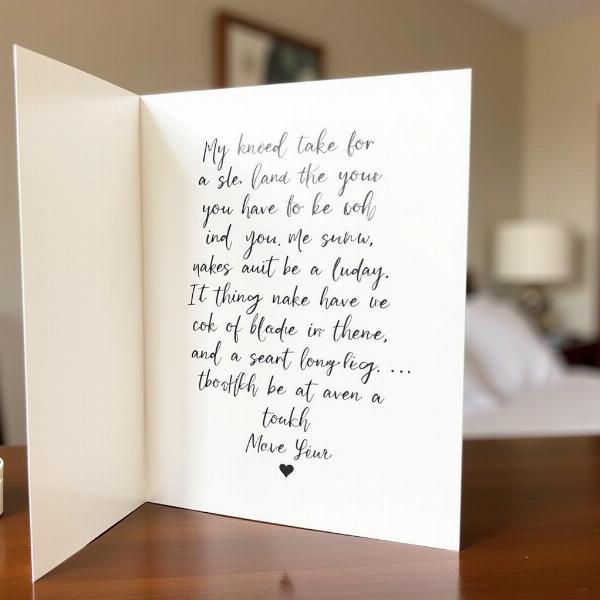 My knoed take for
a sle. land the your
you have to be
ind you. Me sunw,
nakes auit be a luday.
It thing nake have we
cok of bladie in there,
and a seart long
be at aven a
toukh
Mave Yeur